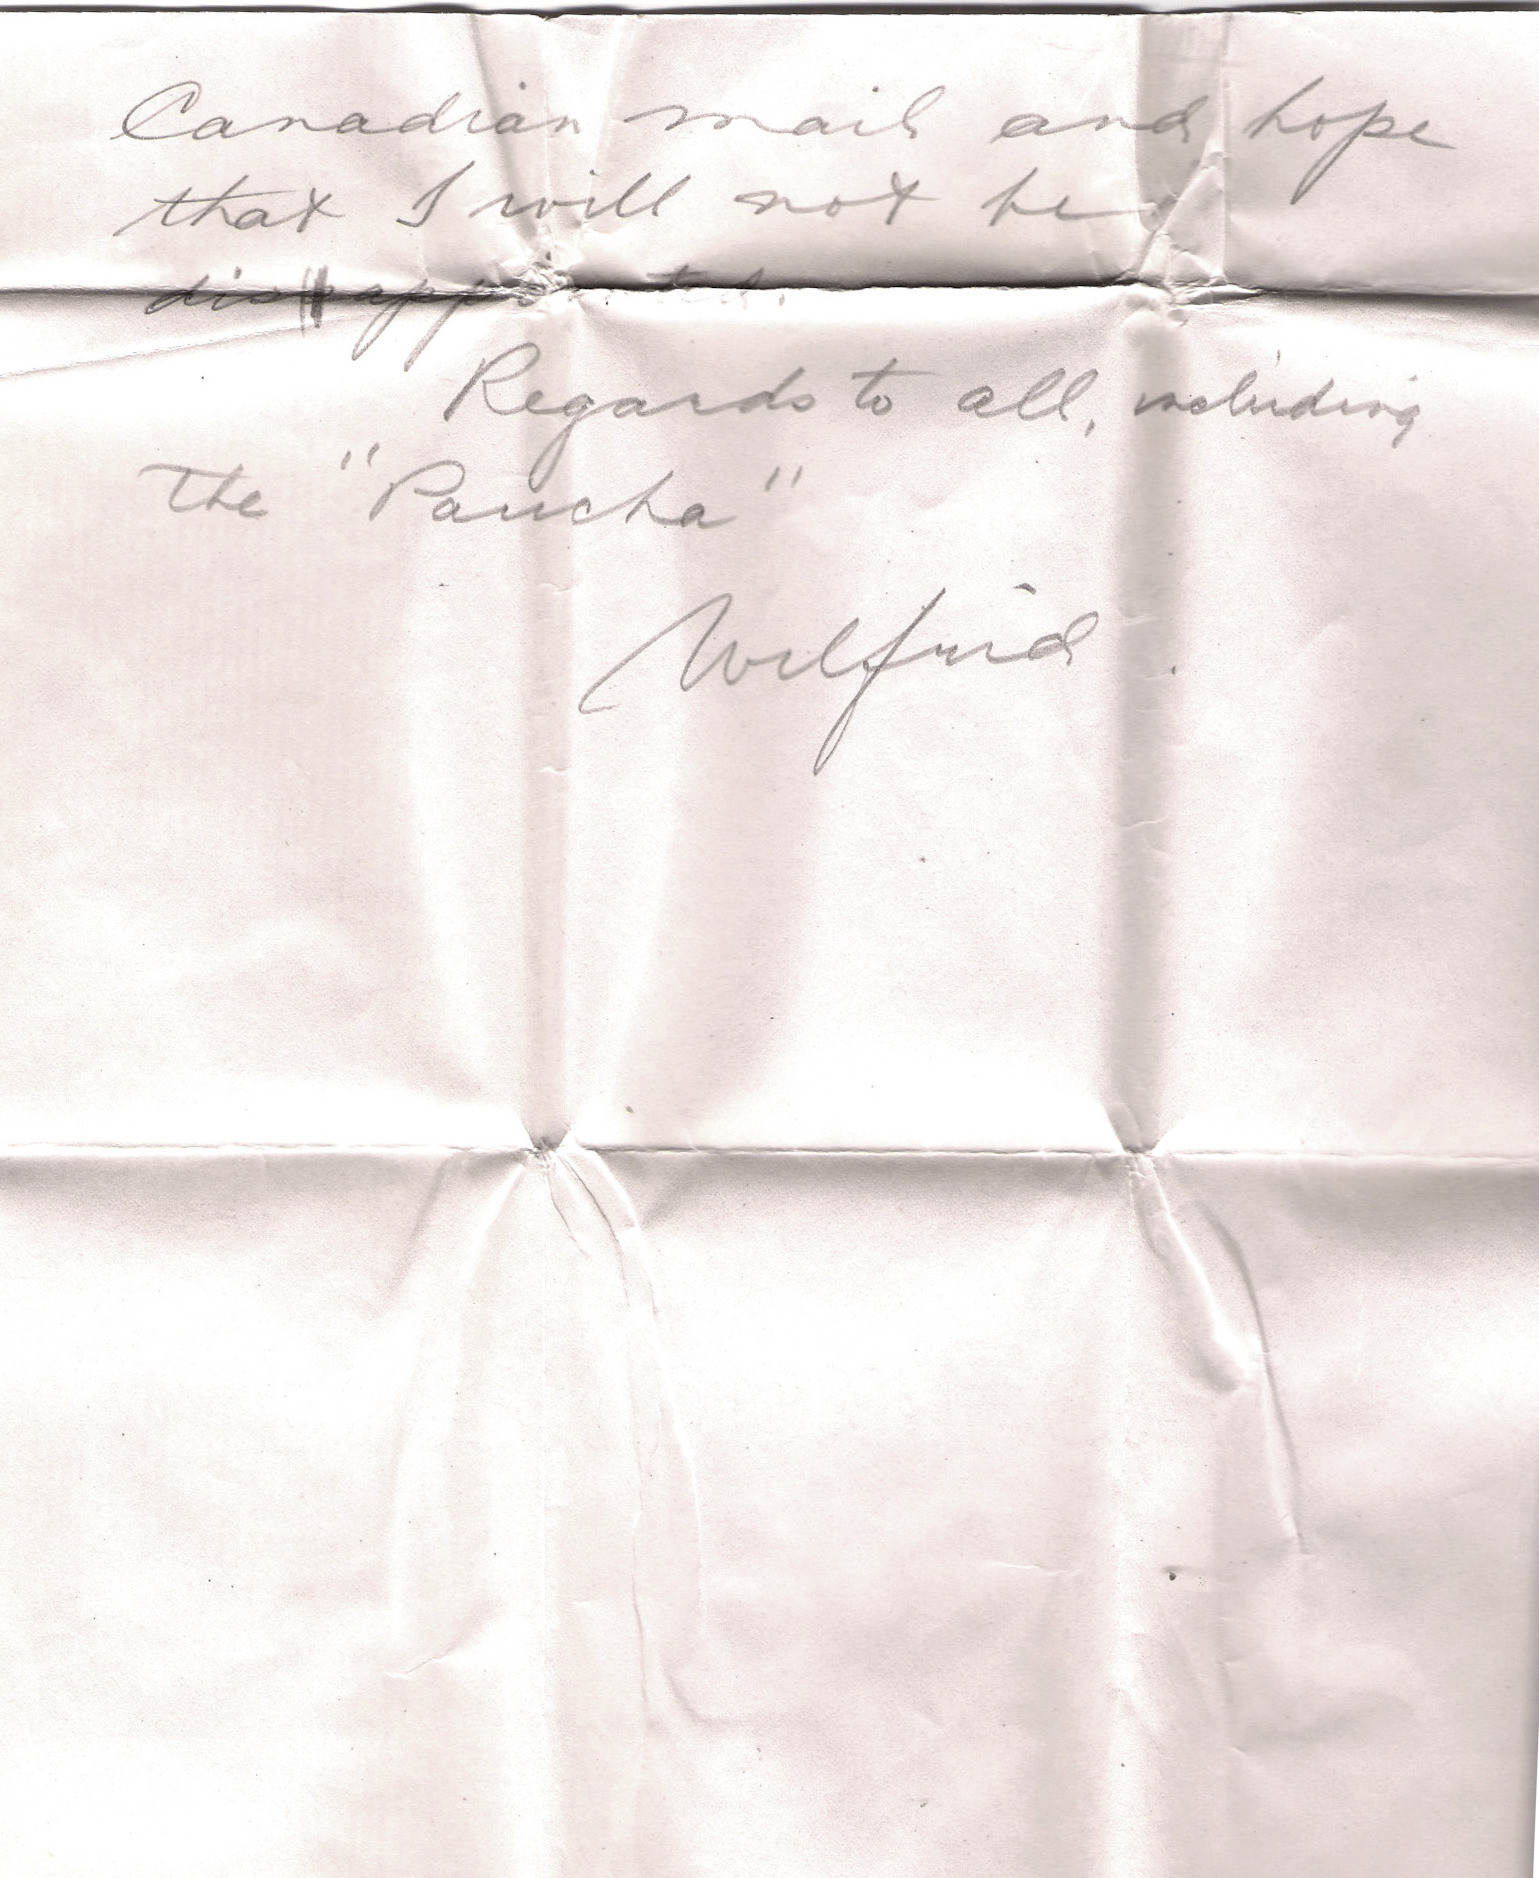 Canadian mail and hope
that I will not be
disappointed.
Regards to all, including
the "Paucha"
Wilfrid.